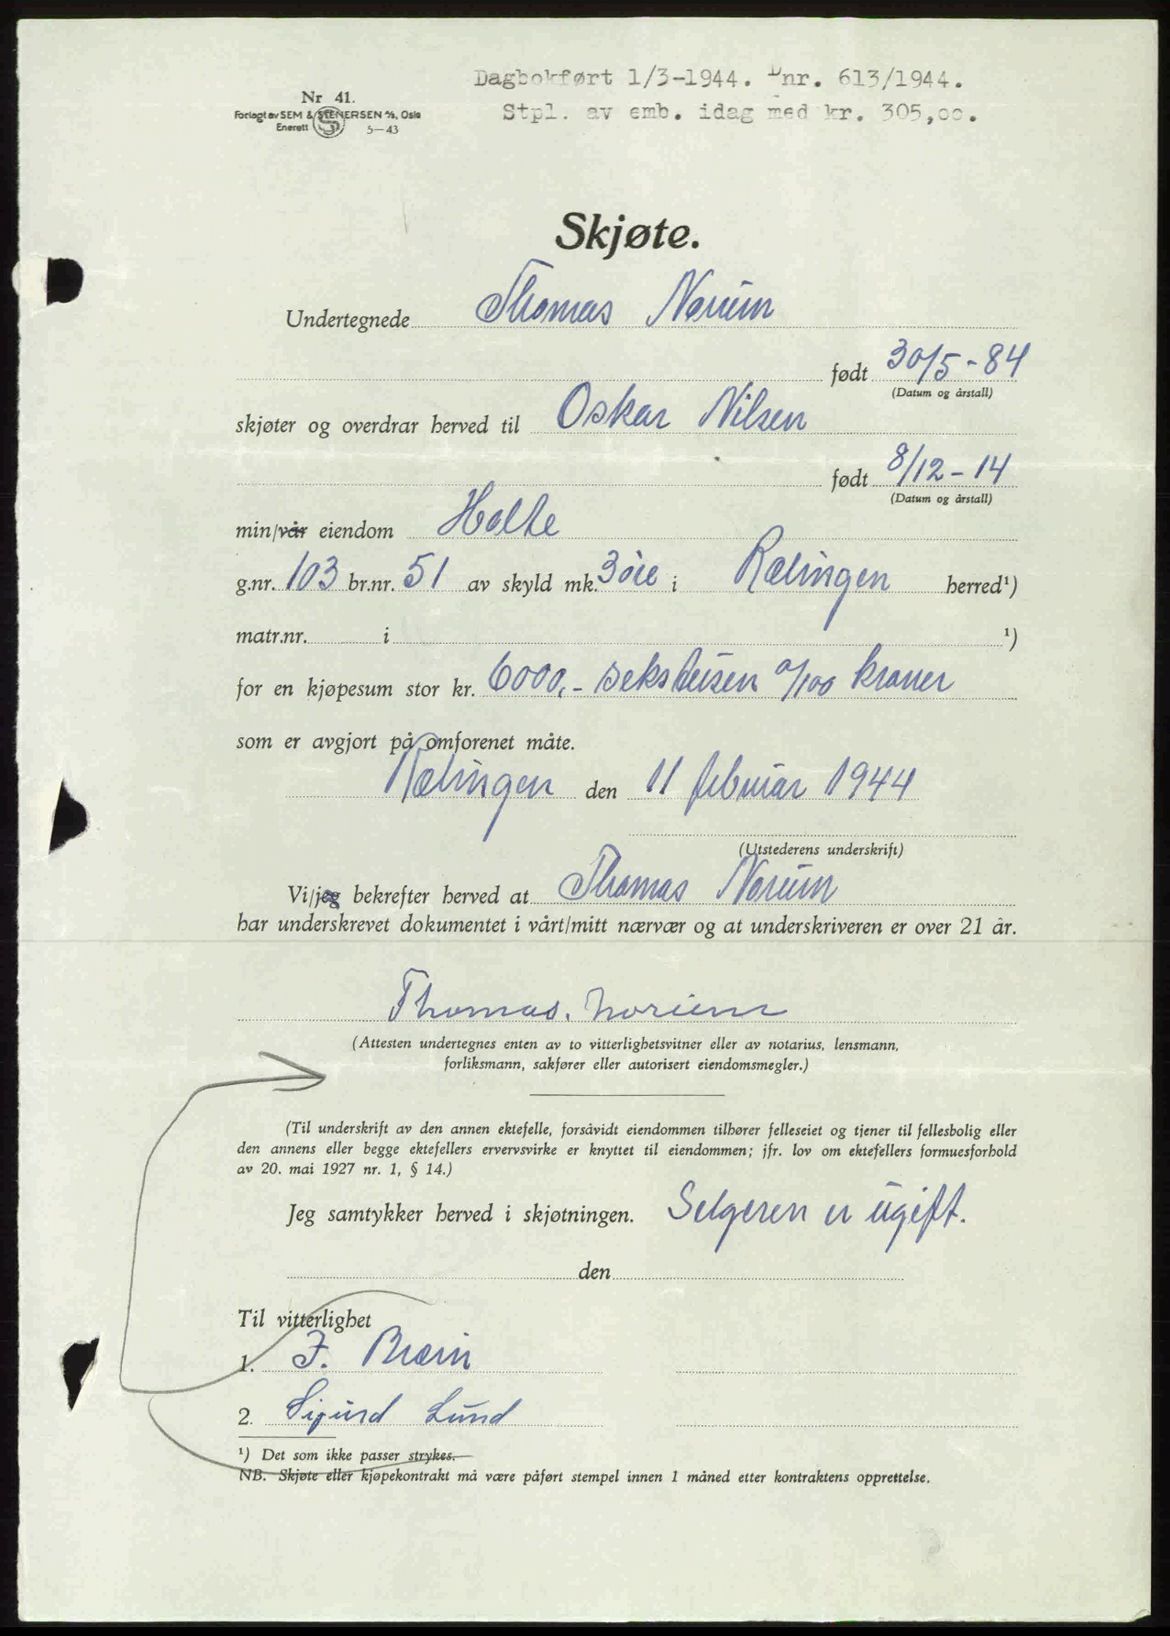 Dagbokført 1/3-1944. Dnr. 613/1944.
Stpl. av emb. idag med kr. 305,oo.
Nr 41.
Forlagt av SEM & STENERSEN A/S, Oslo
Enerett S 5—43
Skjøte.
Undertegnede Thomas Norum
født 30/5-84
(Datum og årstall)
skjøter og overdrar herved til Oskar Nilsen
født 8/12-14
(Datum og årstall)
min/vår eiendom Holte
g.nr. 103 br.nr. 51 av skyld mk. 3 øre i Rælingen herred¹)
matr.nr. i ¹)
for en kjøpesum stor kr. 6000,- sekstusen 0/100 kroner
som er avgjort på omforenet måte.
Rælingen den 11 februar 1944
(Utstederens underskrift)
Vi/jeg bekrefter herved at Thomas Norum
har underskrevet dokumentet i vårt/mitt nærvær og at underskriveren er over 21 år.
Thomas. Norum
(Attesten undertegnes enten av to vitterlighetsvitner eller av notarius, lensmann,
forliksmann, sakfører eller autorisert eiendomsmegler.)
(Til underskrift av den annen ektefelle, forsåvidt eiendommen tilhører felleseiet og tjener til fellesbolig eller
den annens eller begge ektefellers ervervsvirke er knyttet til eiendommen; jfr. lov om ektefellers formuesforhold
av 20. mai 1927 nr. 1, § 14.)
Jeg samtykker herved i skjøtningen. Selgeren er ugift.
den
Til vitterlighet
1. J.
2. Sigurd Lund
¹) Det som ikke passer strykes.
NB. Skjøte eller kjøpekontrakt må være påført stempel innen 1 måned etter kontraktens opprettelse.